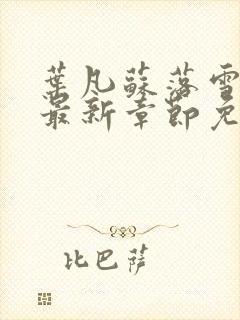 葉凡蘇落雪
最新章節免
比巴薩